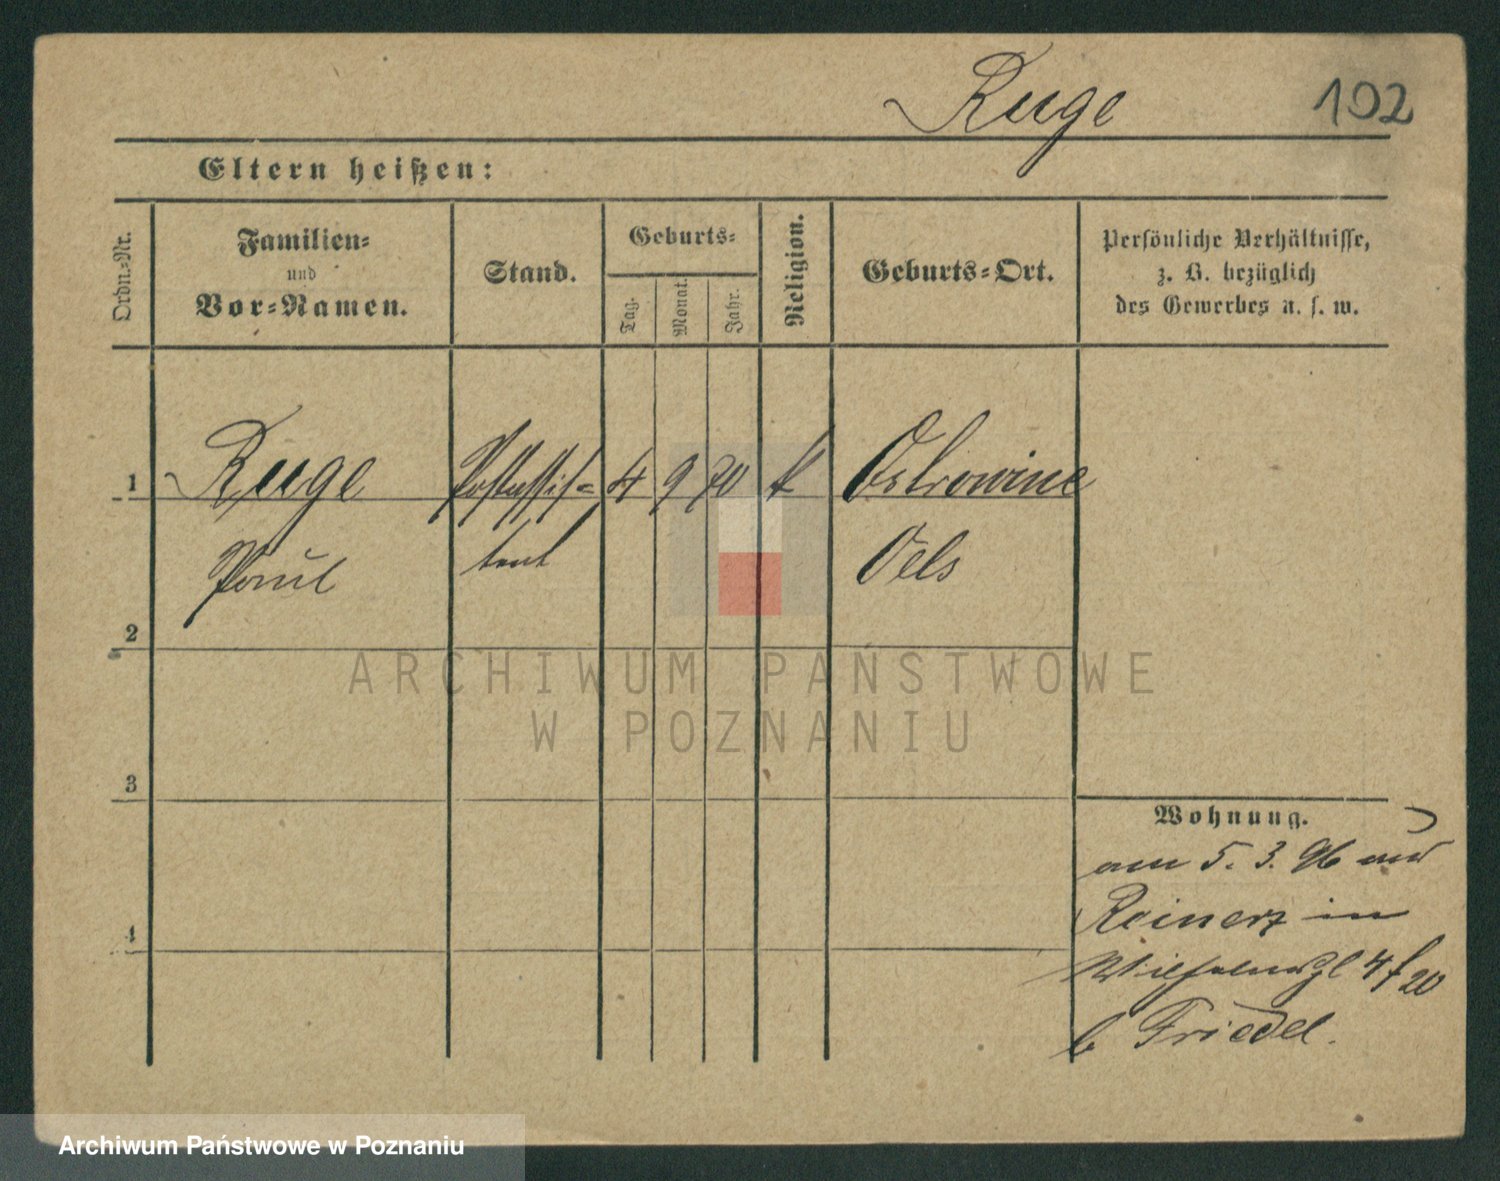 Ruge
102
Eltern heißen:
Ordn.-Nr.
Familien-
und
Vor-Namen.
Stand.
Geburts-
Tag.
Monat.
Jahr.
Religion.
Geburts-Ort.
Persönliche Verhältnisse,
z. B. bezüglich
des Gewerbes u. s. w.
1
Ruge
Postassis=
4
9
70
k
Ostrowine
Paul
tent
Oels
2
ARCHIWUM PAŃSTWOWE
W POZNANIU
3
Wohnung.
am 5. 3. 96 aus
Reinerz in
Wilhelmspl 4
4
b Friedel.
Archiwum Państwowe w Poznaniu